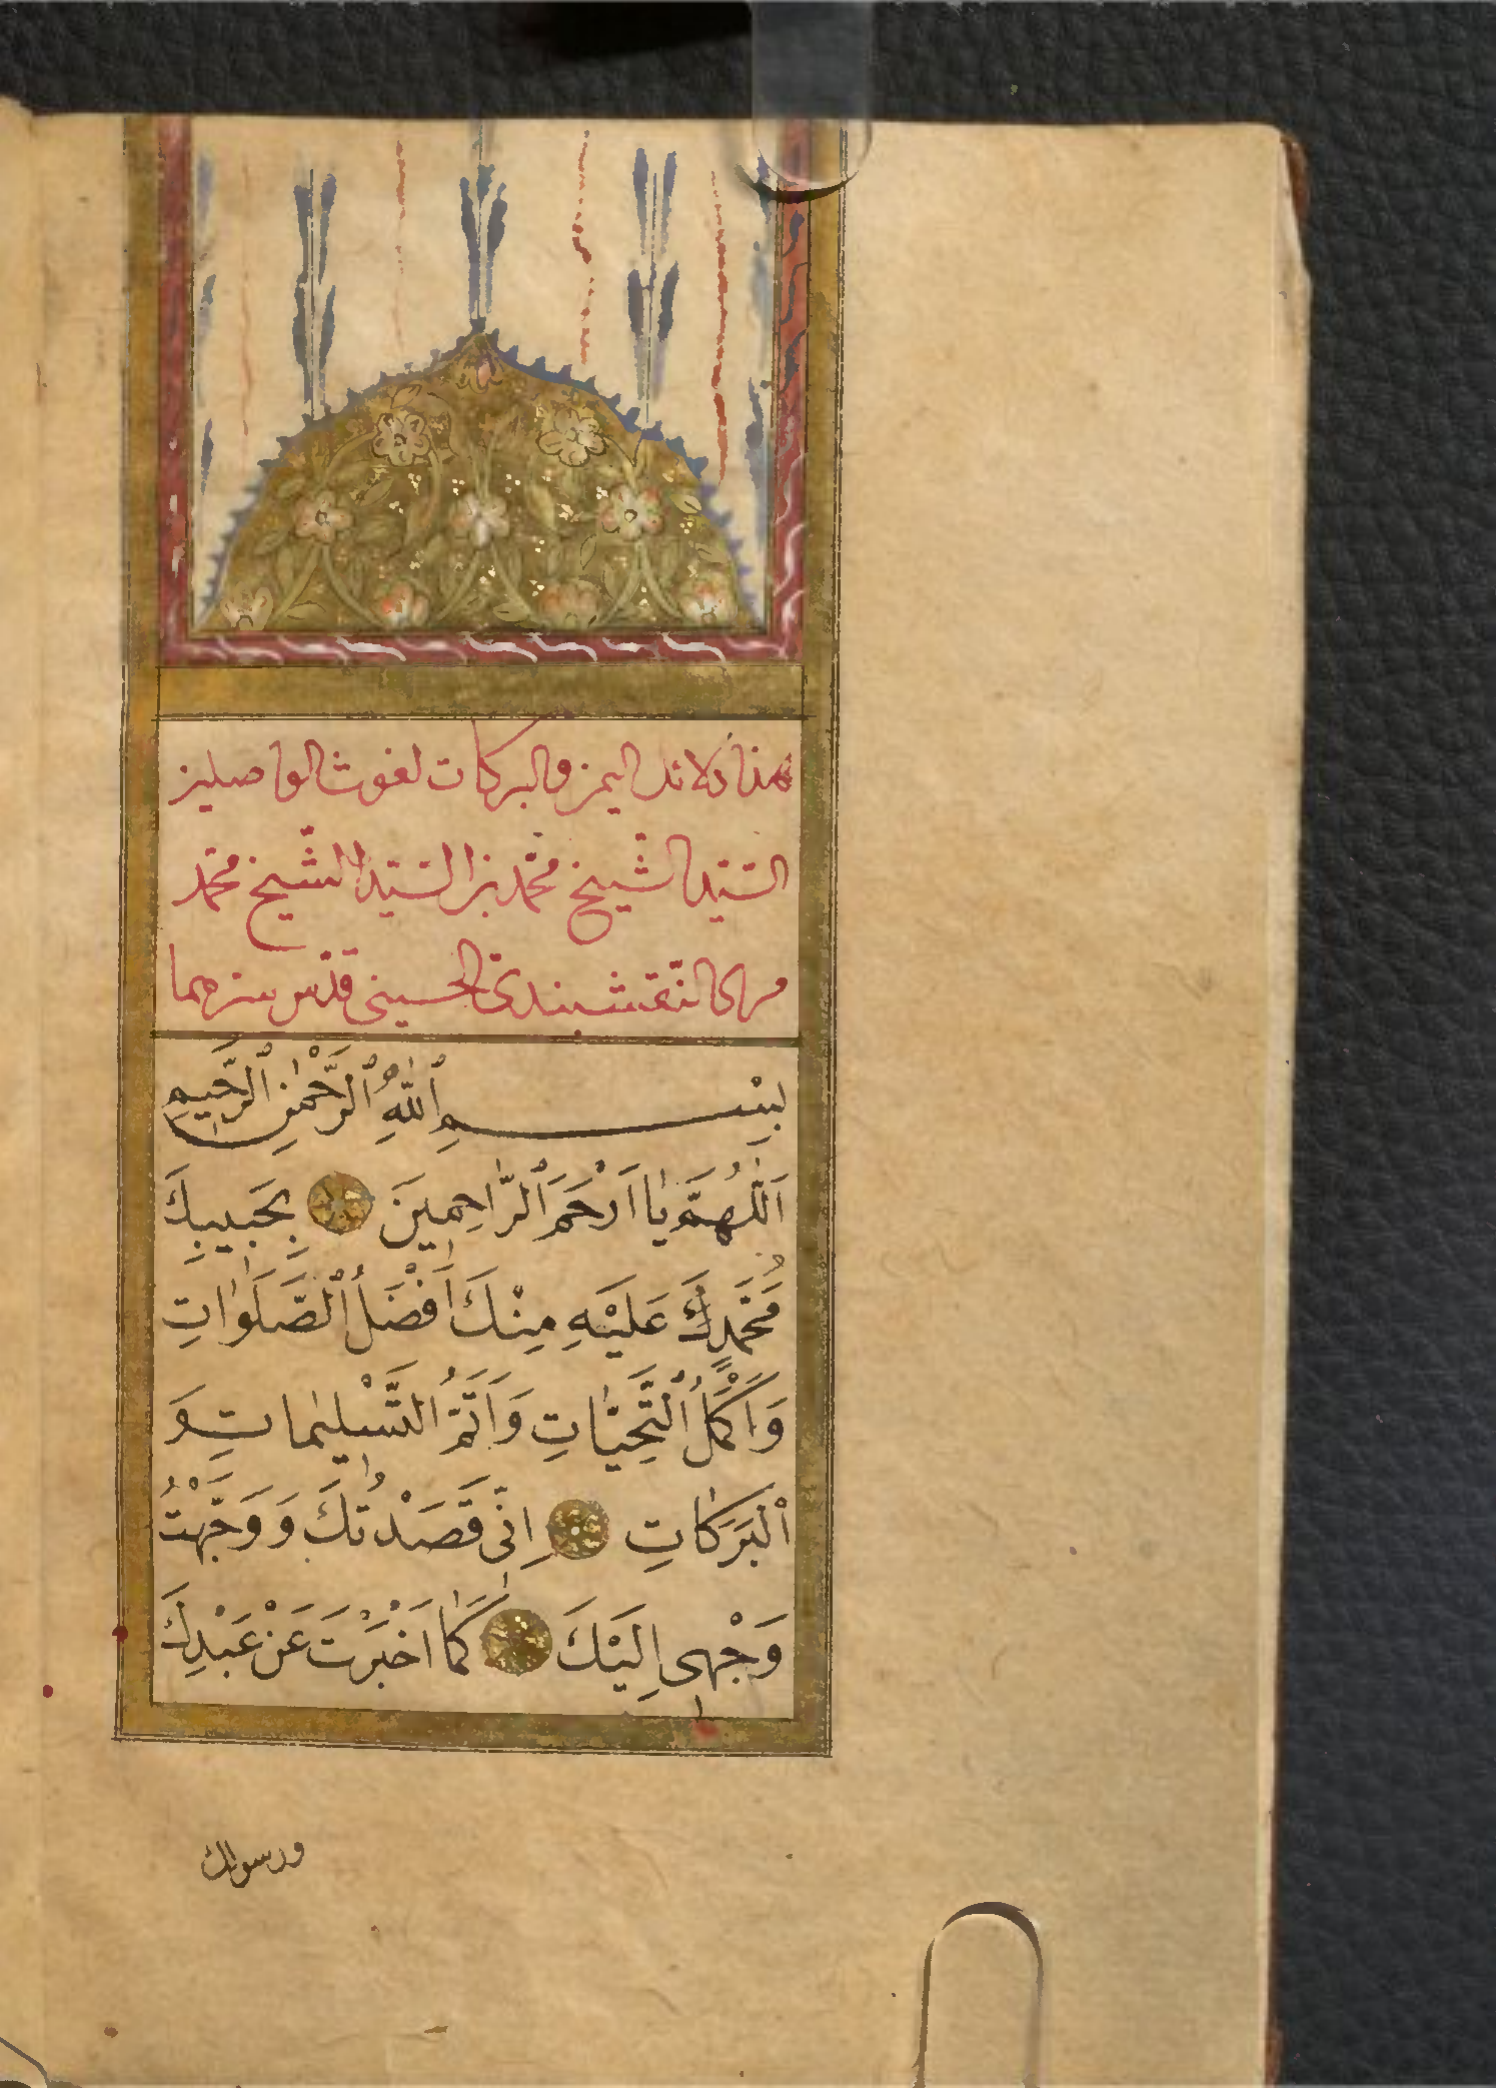 هذا دلائل اليمن والبركات لغوث الواصلين
السّيّد الشّيخ محمّد بن السّيّد الشّيخ محمّد
مراد النّقشبندىّ الحسينى قدّس سرّهما
بِسْمِ ٱللّٰهِ ٱلرَّحْمٰنِ ٱلرَّحِيمِ
اَللّٰهُمَّ يَا اَرْحَمَ ٱلرَّاحِمِينَ بِحَبِيبِكَ
مُحَمَّدٍ لَكَ عَلَيْهِ مِنْكَ اَفْضَلُ ٱلصَّلَوَاتِ
وَاَكْمَلُ ٱلتَّحِيَّاتِ وَاَتَمُّ ٱلتَّسْلِيمَاتِ وَ
ٱلْبَرَكَاتِ اِنِّى قَصَدْتُكَ وَ وَجَّهْتُ
وَجْهِى اِلَيْكَ كَمَا اَخْبَرْتَ عَنْ عَبْدِكَ
ورسولك